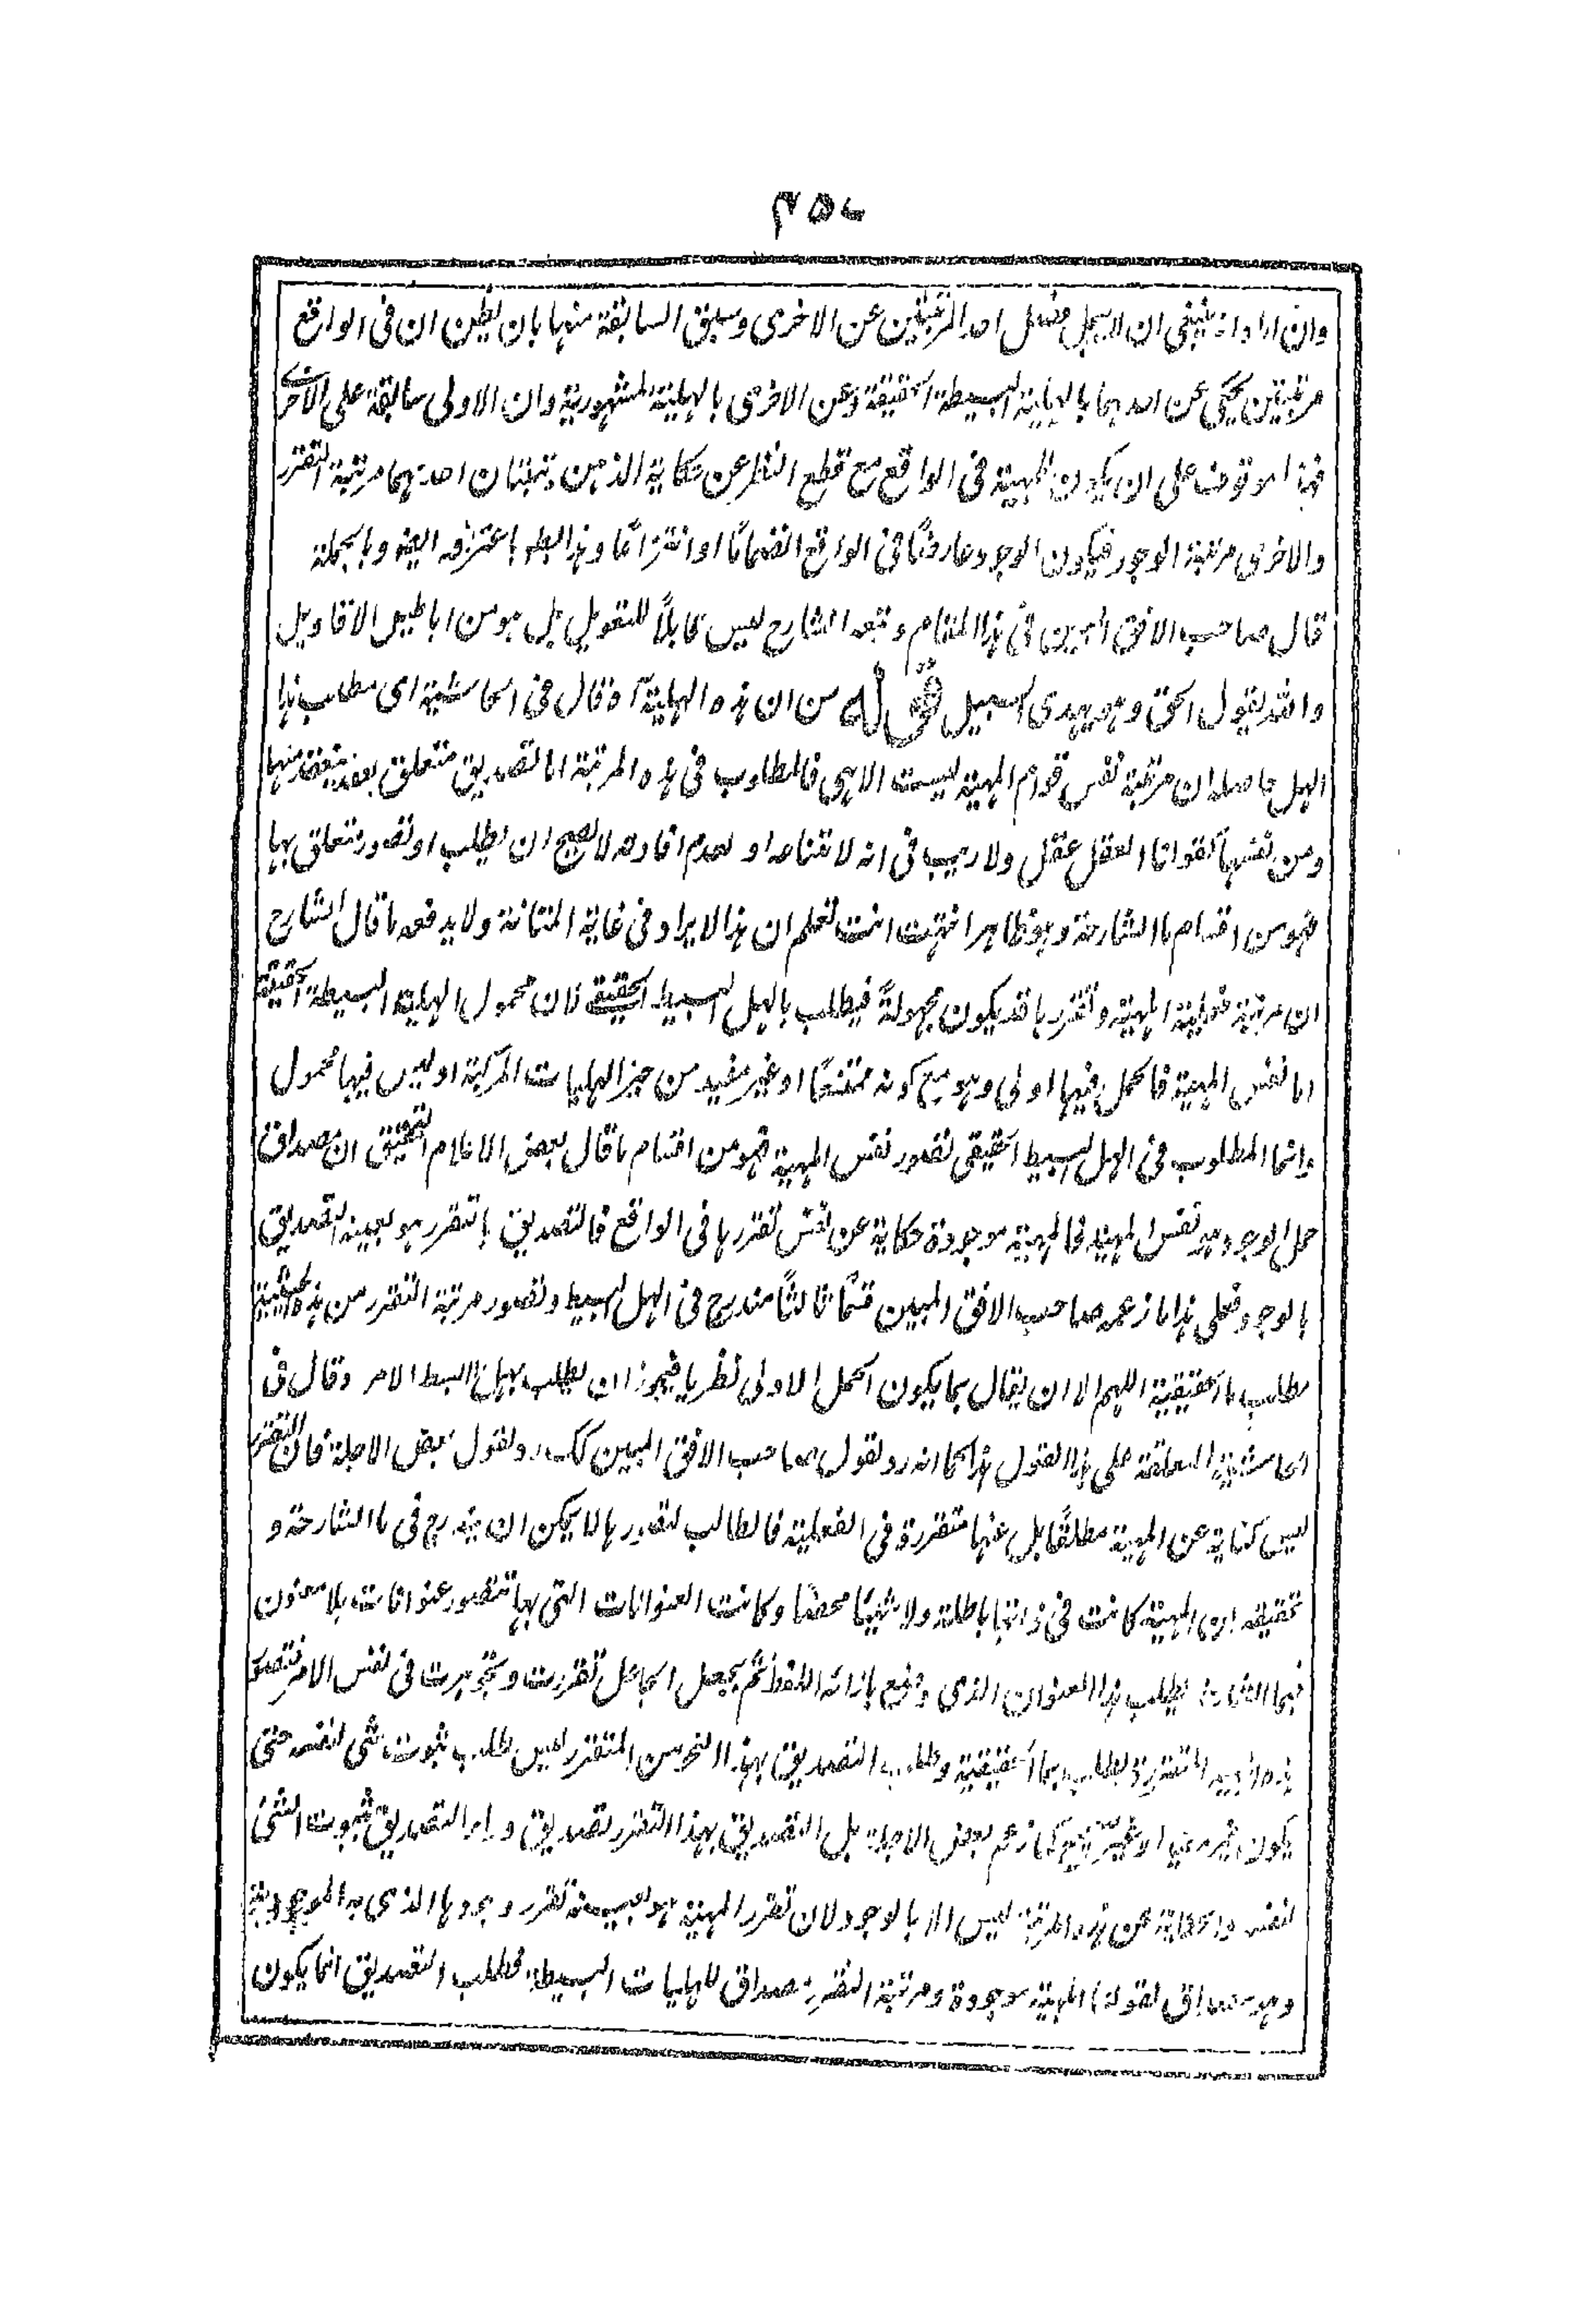 ٤٥٧
وان اراد انه ينبغي ان لا يهمل فصل احد المرتبتين عن الاخرى وسبق السابقة منها بان يظن ان في الواقع
مرتبتين يحكى عن احدهما بالهلية البسيطة الحقيقة وعن الاخرى بالهلية المشهورية وان الاولى سابقة على الاخرى
فهذا موقوف على ان يكون للمهية في الواقع مع قطع النظر عن حكاية الذهن مرتبتان احدهما مرتبة التقرر
والاخرى مرتبة الوجود فيكون الوجود عارضًا في الواقع انضمامًا او انتزاعًا وهذا باعترافه ايضا وبالجملة
قال صاحب الافق المبين في هذا المقام وتبعه الشارح ليس قابلًا للتعويل بل هو من اباطيل الاقاويل
والله يقول الحق وهو يهدي السبيل قوله من ان هذه الهلية آه قال في الحاشية اي مطلب هذا
الهل حاصله ان مرتبة نفس قوام المهية ليست الا هي فالمطلوب في هذه المرتبة اما تصديق متعلق بعقد ينعقد منها
ومن نفسها كقولنا العقل عقل ولا ريب في انه لامتناعه او لعدم افادته لا يصح ان يطلب او تصور متعلق بها
فهو من اقسام ما الشارحة وهو ظاهر انتهت انت تعلم ان هذا الايراد في غاية المتانة ولا يدفعه ما قال الشارح
ان مرتبة فعلية المهية وتقررها قد يكون مجهولة فيطلب بالهل البسيط الحقيقي لان محمول الهلية البسيطة الحقيقة
اما نفس المهية فالحمل فيها اولى وهو مع كونه ممتنعًا او غير مفيد من حيز الهليات المركبة او ليس فيها محمول
وانما المطلوب في الهل البسيط الحقيقي تصور نفس المهية فهو من اقسام ما قال بعض الاعلام التحقيق ان مصداق
حمل الوجود هو نفس المهية فالمهية موجودة حكاية عن نفس تقررها في الواقع فالتصديق بالتقرر هو بعينه التصديق
بالوجود فعلى هذا ما زعمه صاحب الافق المبين قسمًا ثالثًا مندرج في الهل البسيط وتصور مرتبة التقرر من هذه الحيثية
مطلب ما الحقيقية اللهم الا ان يقال بما يكون الحمل الاولى نظريا فيجوز ان يطلب بهل البسيط الامر وقال في
الحاشية المعلقة على هذا القول هذا كما انه رد لقول صاحب الافق المبين كك رد لقول بعض الاجلة فان التقرر
ليس كناية عن المهية مطلقًا بل عنها متقررة في الفعلية فالطالب لتقررها لا يمكن ان يندرج في ما الشارحة و
تحقيقه ان المهية كانت في ذاتها باطلة ولا شيئا محضًا وكانت العنوانات التي بها تتصور عنوانات بلا معنون
فبما الشارحة يطلب هذا العنوان الذي وضع بازائه اللفظ ثم بجعل الجاعل تقررت وتجوهرت في نفس الامر فتصور
هذه المتقررة يطلب بما الحقيقية وطلب التصديق بهذا النحو من المتقرر ليس طلب ثبوت شي لنفسه حتى
يكون غير مفيد او غير صحيح كما زعم بعض الاجلة بل التصديق بهذا التقرر تصديق وراء التصديق بثبوت الشئ
لنفسه والحكاية عن هذه المرتبة ليس الا بالوجود لان تقرر المهية هو بعينه تقرر وجودها الذي به الموجودية
وهو مصداق لقولنا المهية موجودة ومرتبة التقرر مصداق للهليات البسيطة فطلب التصديق انما يكون